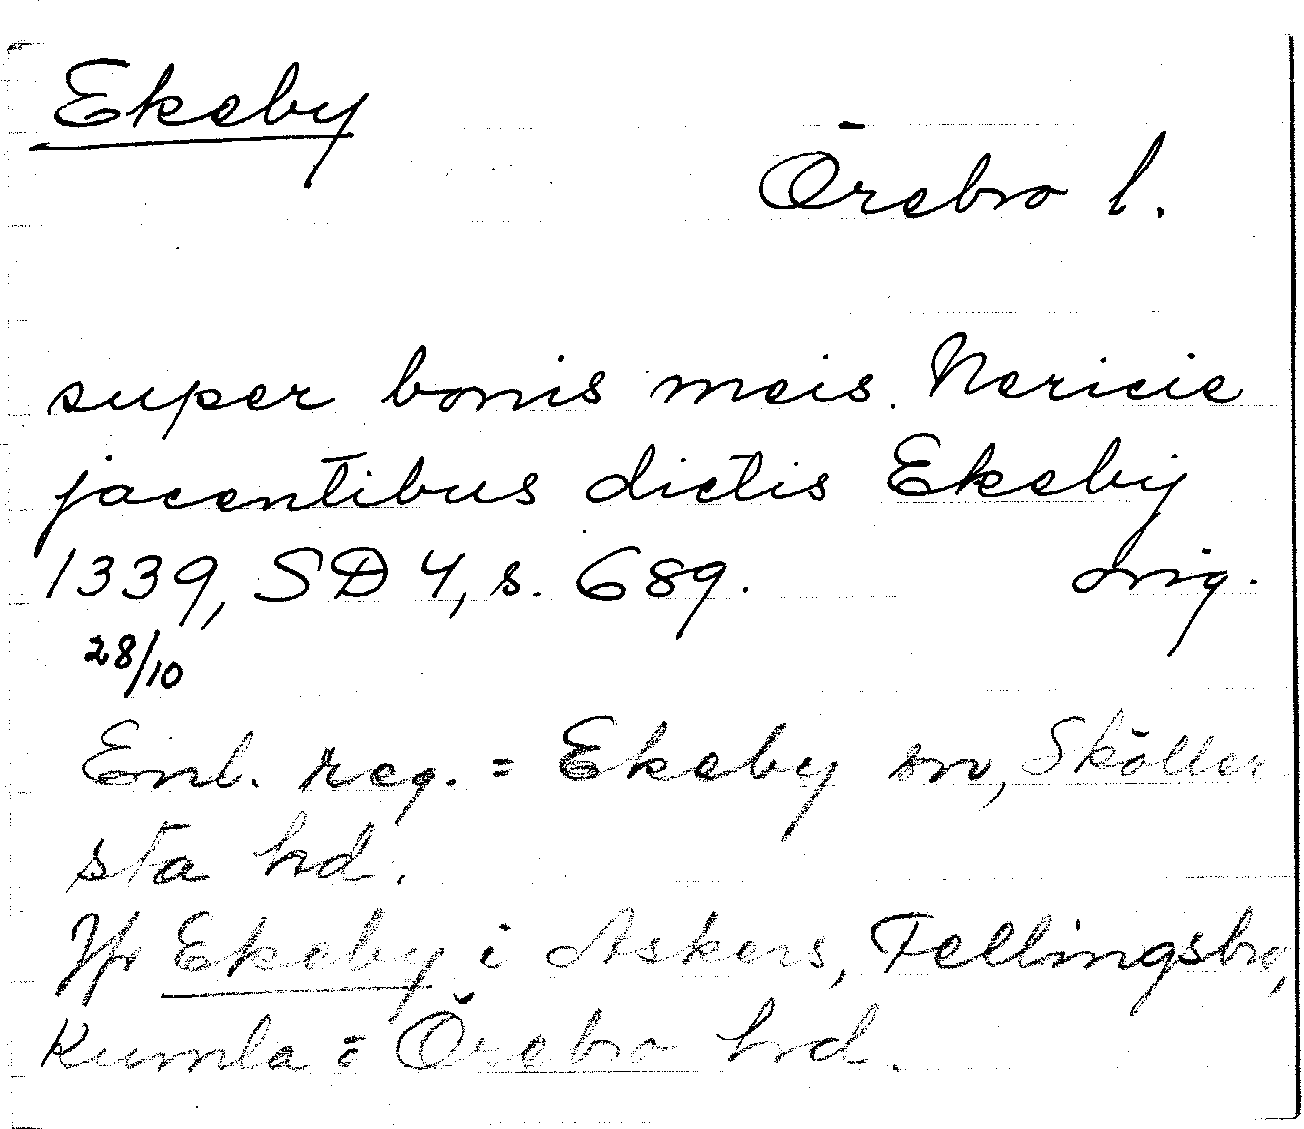 Ekeby
Örebro l.
super bonis meis. Nericie
jacentibus dictis Ekeby
1339, SD 4, s. 689. orig.
28/10
Enl. reg. = Ekeby sn, Sköller
sta hd.
Jfr Ekeby i Askers, Fellingsbro,
Kumla o Örebro hd.